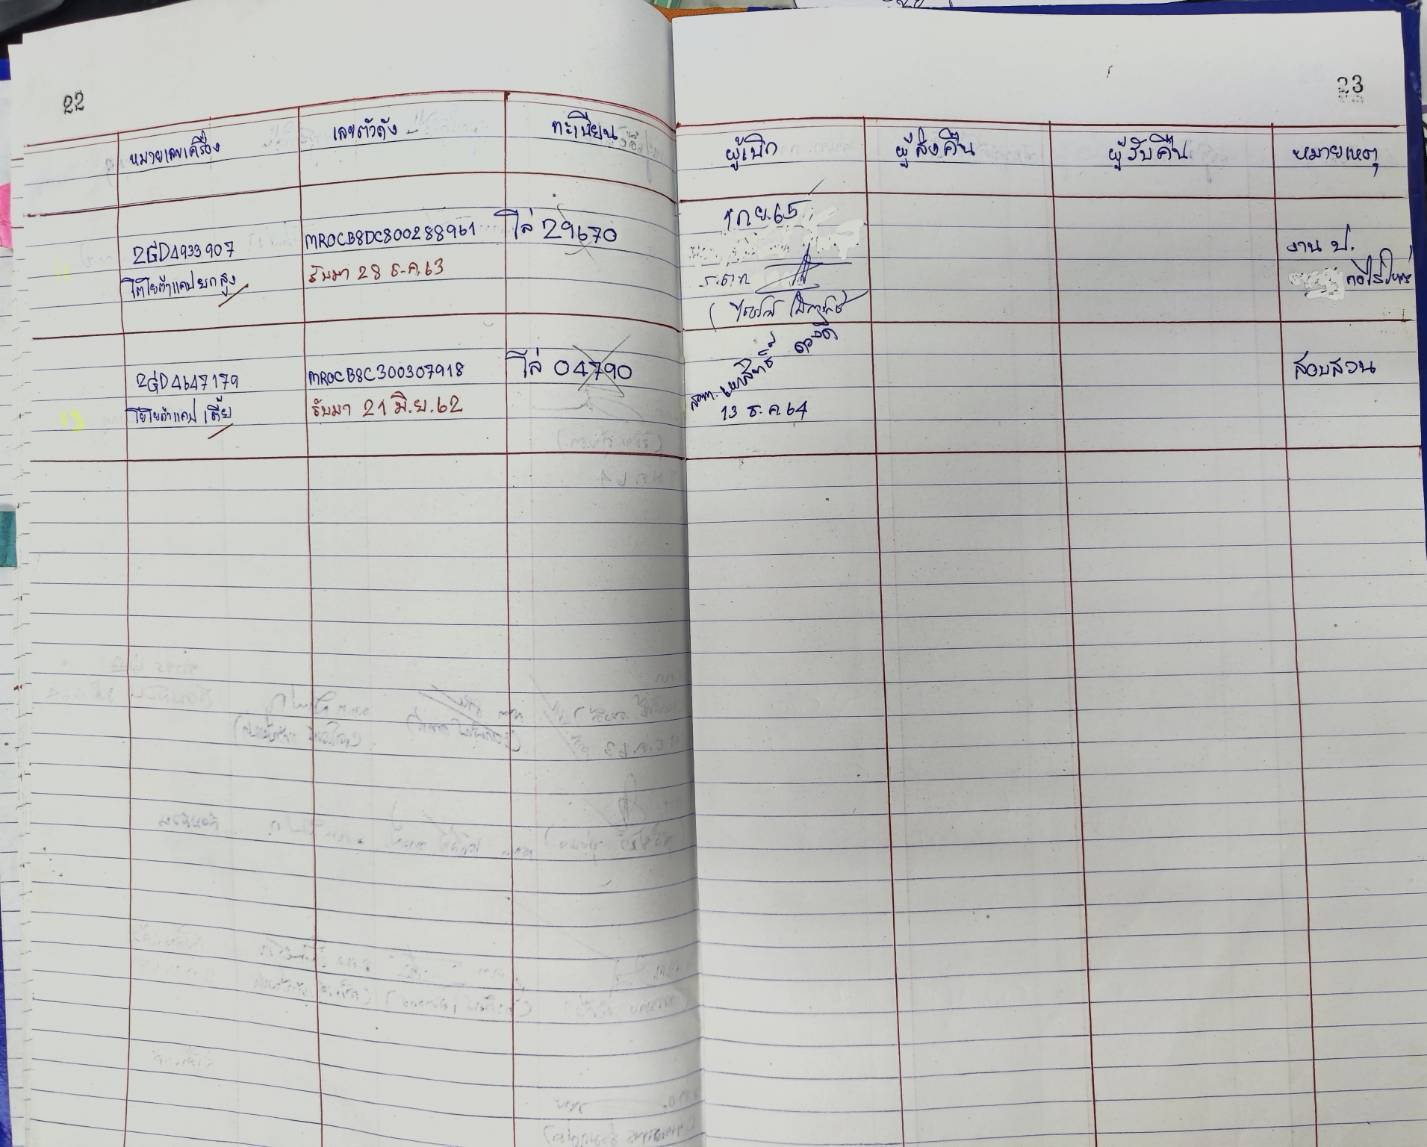 22
23
หมายเลขเครื่อง
เลขตัวถัง
ทะเบียน
ผู้เบิก
ผู้ส่งคืน
ผู้รับคืน
หมายเหตุ
2GD4933907
MR0CB8DC800288961
โล่ 29670
1 ก.ย. 65
งาน ป.
โตโยต้าแคปยกสูง
รับมา 28 ธ.ค. 63
ร.ต.ท
2GD4647179
MR0CB8C300307918
โล่ 04790
สอบสวน
โตโยต้าแคปเตี้ย
รับมา 21 มิ.ย. 62
13 ธ.ค. 64